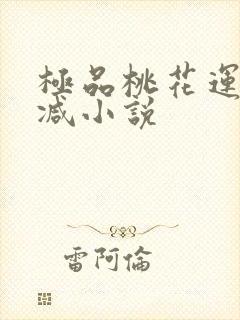 極品桃花運
減小說
雷阿倫